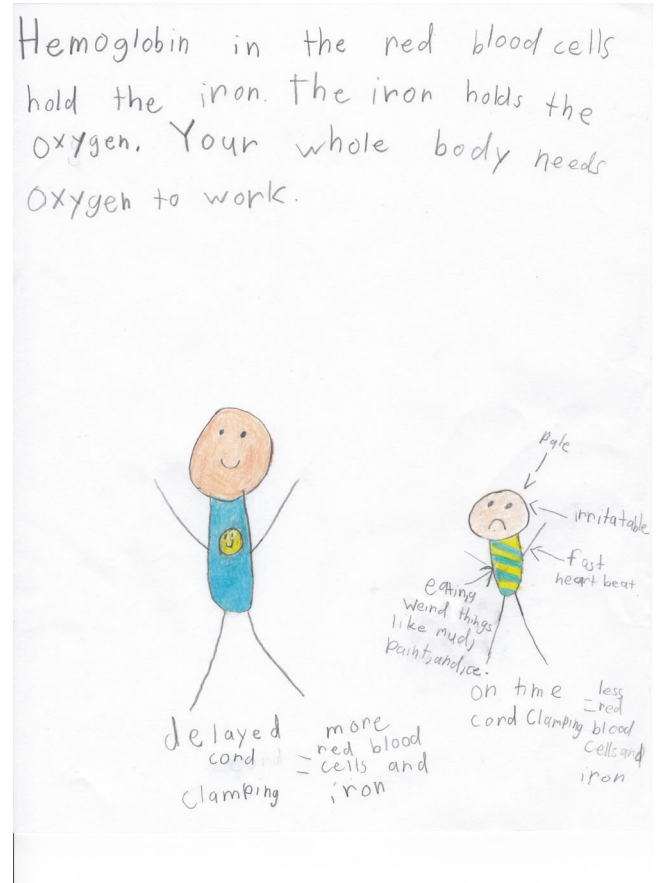 Hemoglobin in the red blood cells
hold the iron. The iron holds the
oxygen. Your whole body needs
oxygen to work.
pale
irritatable
fast
heart beat.
eating
weird things
like mud,
paint, and ice.
delayed
cord
clamping
= more
red blood
cells and
iron
on time
cord Clamping
= less
red
blood
cells and
iron